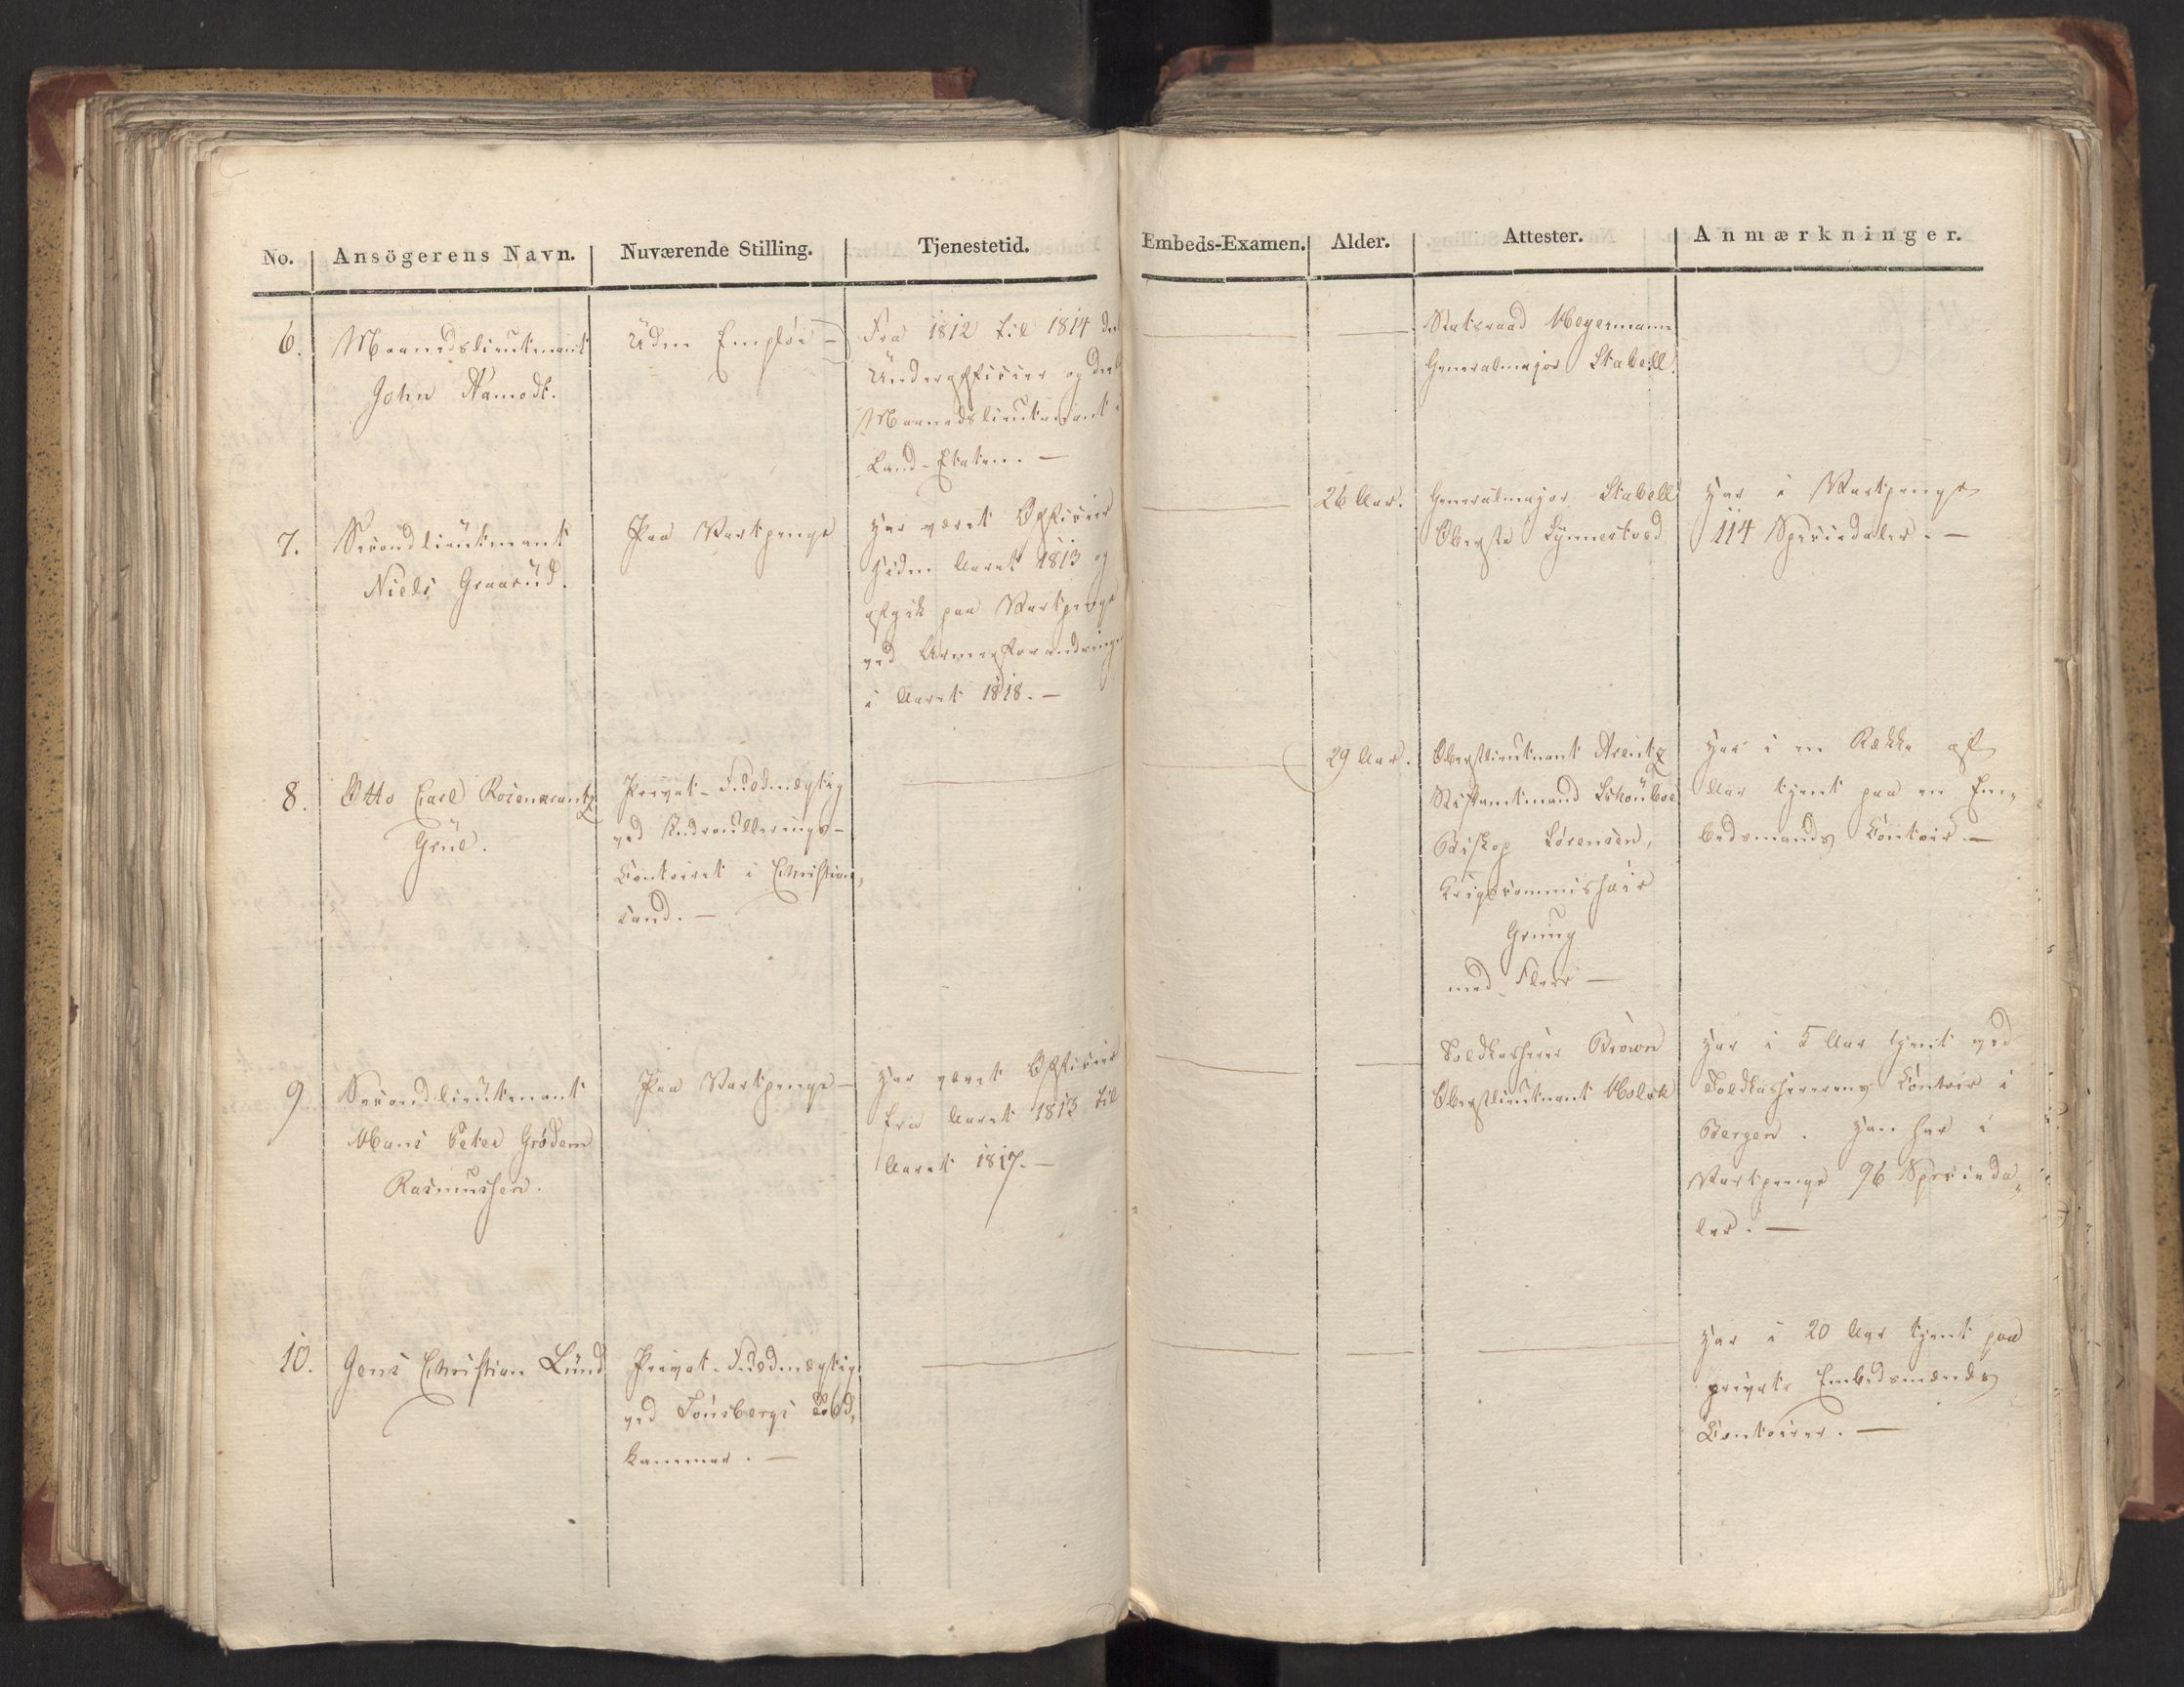 No. Ansögerens Navn. Nuværende Stilling. Tjenestetid. Embeds-Examen. Alder. Attester. Anmærkninger.
6.
Maanedslieutenant
John Aamodt.
Uden Emploi -
Fra 1812 til 1814 deels
Underofficier og deels
Maanedslieutenant i
Land-Etaten. -
Statsraad Hegermann
Generalmajor Stabell.
7.
Secondlieutenant
Niels Graarud.
Paa Vartpenge
Har været Officier
siden Aaret 1813 og
afgik paa Vartpenge
ved Armeeforandringen
i Aaret 1818. -
26 Aar.
Generalmajor Stabell
Oberste Lynnestvedt
Har i Vartpenge
114 Speciedaler. -
8.
Otto Carl Rosencrantz
Grüe.
Privat-Fuldmægtig
ved Indroullerings-
Contoiret i Christian,
sand. -
29 Aar.
Oberstlieutenant Arentz
Stiftamtmand Schouboe
Biskop Sörensen,
Krigscommissair
Grüng
med Flere -
Har i en Række af
Aar tjent paa en Em-
bedsmands Contoir -
9
Secondlieutenant
Hans Peter Grödem
Rasmussen.
Paa Vartpenge -
Har været Officier
fra Aaret 1813 til
Aaret 1817. -
Toldkasserer Brown
Oberstlieutenant Holck
Har i 5 Aar tjent ved
Toldkassererens Contoir i
Bergen. Han har i
Vartpenge 96 Specieda-
ler. -
10.
Jens Christian Lund
Privat-Fuldmægtig
ved Tönsbergs Told,
kammer. -
Har i 20 Aar tjent paa
private Embedsmænds
Contoirer. -